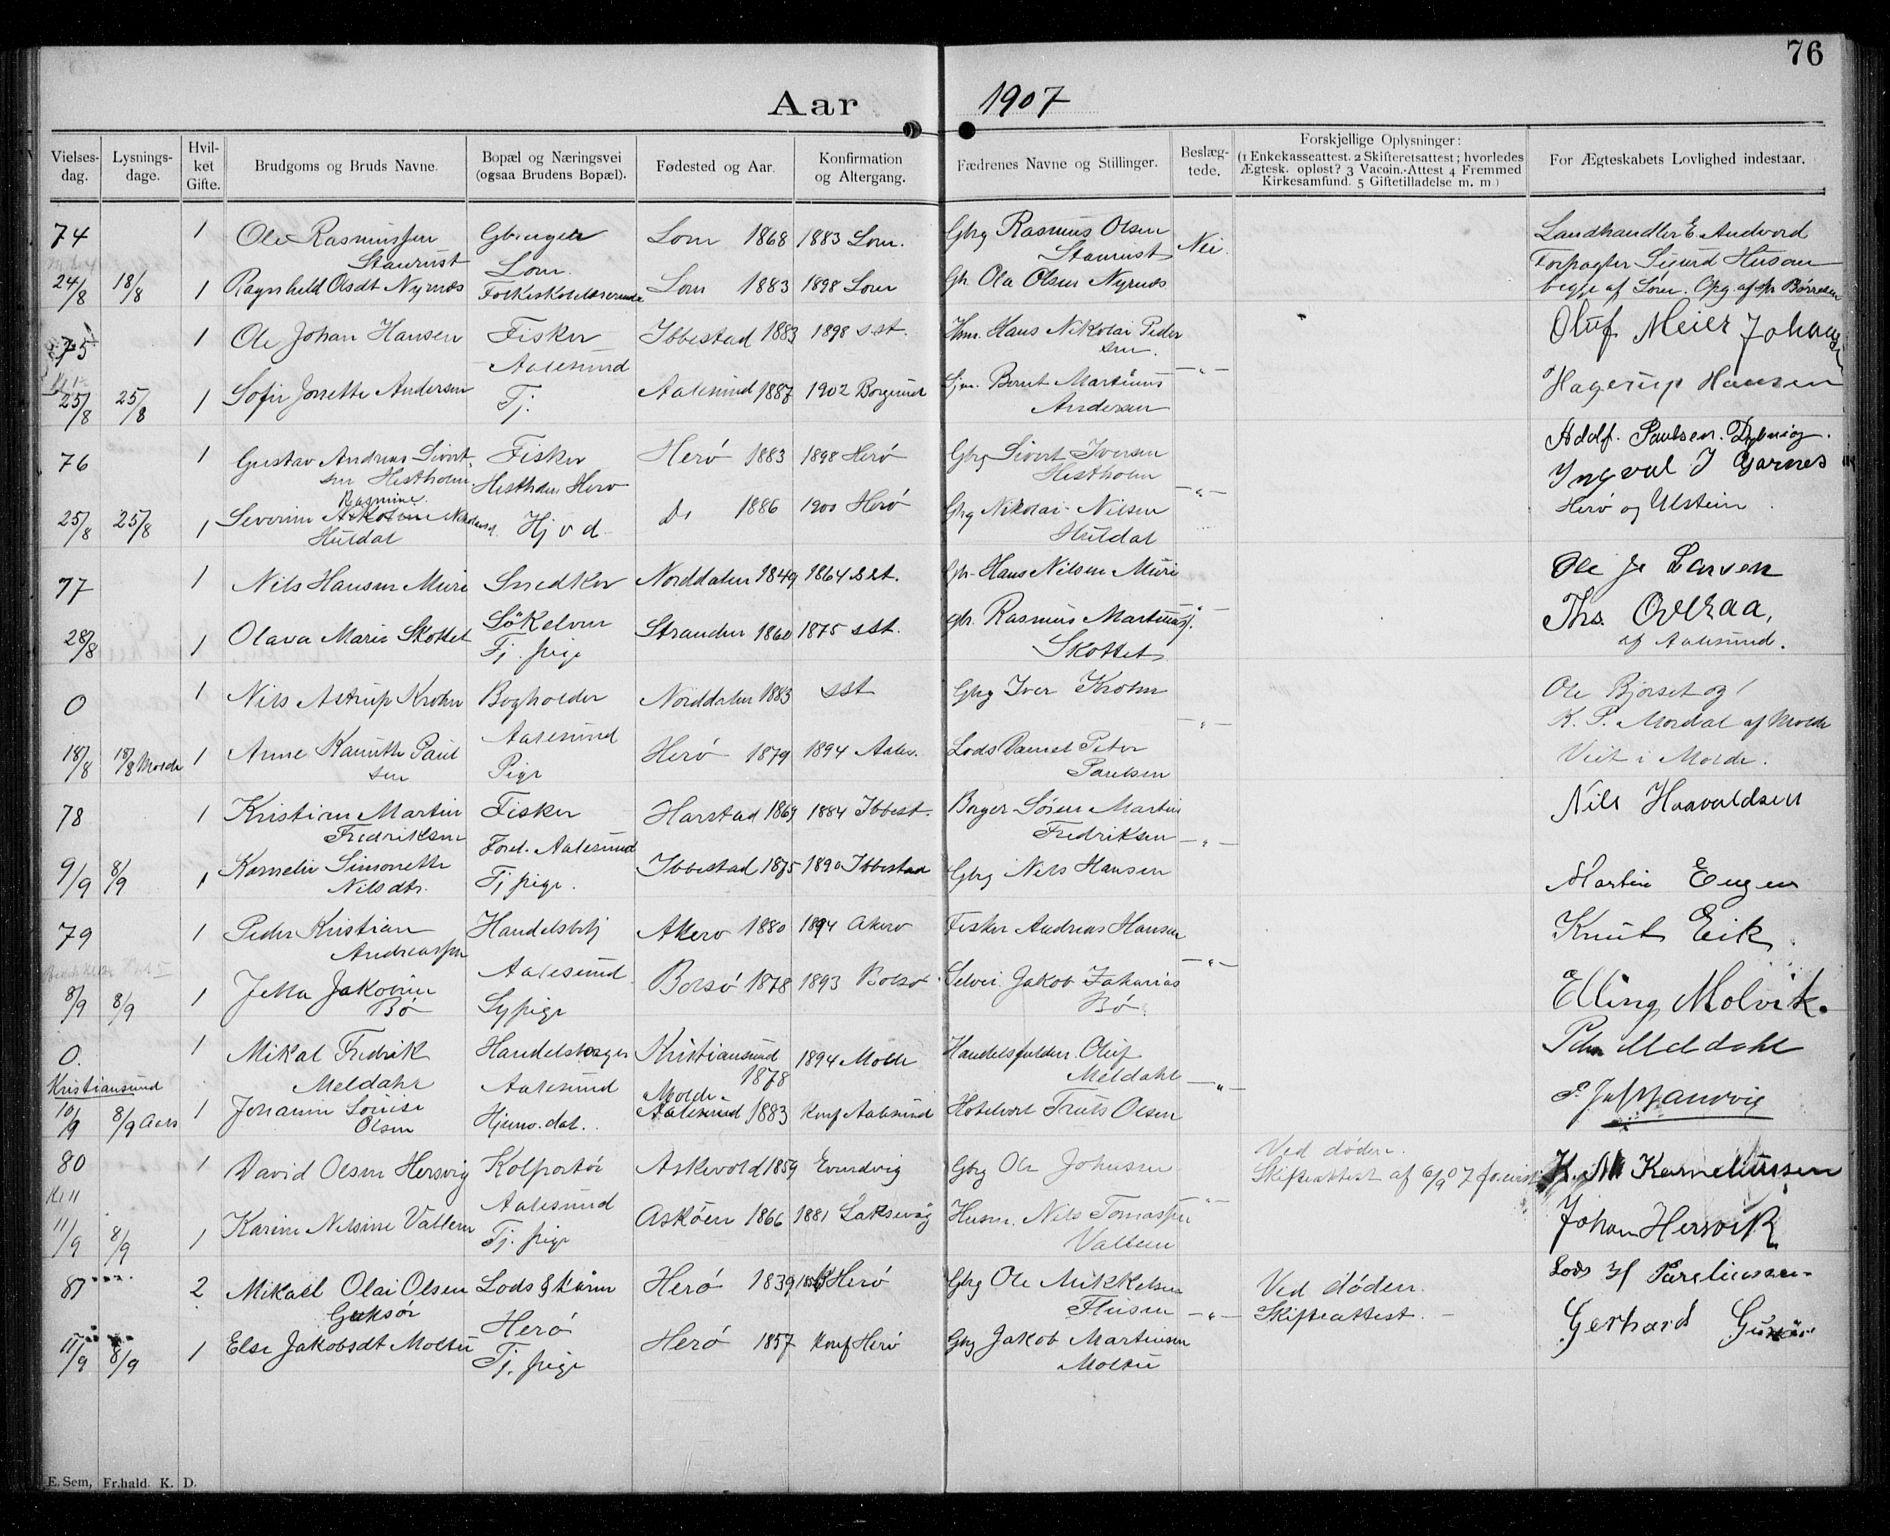 76
Aar 1907
Vielses-dag. Lysnings-dage. Hvil-ket Gifte. Brudgoms og Bruds Navne. Bopæl og Næringsvei (ogsaa Brudens Bopæl). Fødested og Aar. Konfirmation og Altergang. Fædrenes Navne og Stillinger. Beslæg-tede. Forskjellige Oplysninger: (1 Enkekasseattest. 2 Skifteretsattest; hvorledes Ægtesk. opløst? 3 Vaccin.-Attest 4 Fremmed Kirkesamfund. 5 Giftetilladelse m. m) For Ægteskabets Lovlighed indestaar.
74 1 Ole Rasmussen Gbruger Lom 1868 1883 Lom. Gbrg Rasmus Olsen Landhandler E. Andvord
Staurust Lom. Staurust Nei. Forpagter Sigurd
24/8 18/8 1 Ragnhild Olsdt Nyrnæs Lom 1883 1898 Lom Gbr. Ola Olsen Nyrnæs begge af Lom.
75 1 Ole Johan Hansen Fisker Ibbestad 1883 1898 sst. Hans Nikolai Peder Oluf Meier
Aalesund sen.
25/8 25/8 1 Sofie Andersen Tj. Aalesund 1887 1902 Borgund Bernt Martinus Hagerup Hansen
Andersen
76 1 Gustav Andreas Sivert Fisker Herø 1883 1898 Herø Gbrg Sivert Iversen Adolf. Paulsen.
sen Hestholm. Hestholm Herø Hestholm Ingval J Garnes
25/8 25/8 1 Severine Rasmine Huldal Hj v d. Do 1886 1900 Herø Gbrg Nikolai Nilsen Herø og Ulstein
Huldal
77 1 Nils Hansen Muri Snedker Norddalen 1849 1864 sst. Gbr. Hans Nilsen Muri Ole Larsen
Søkelven gbr. Rasmus Ths. Overaa,
28/8 1 Olava Marie Skottet Tj. pige Stranden 1860 1875 sst. Skottet af Aalesund.
0 1 Nils Astrup Krohn Bogholder Norddalen 1883 sst Gbrg Iver Krohn Ole Bjorset og
Aalesund K. P. Mordal af Molde
18/8 18/8 Molde 1 Anne Paul Pige Herø 1879 1894 Aales. Lods Daniel Peter Viet i Molde.
sen Paulsen
78 1 Kristian Martin Fisker Harstad 1869 1884 Ibbest. Søren Martin Nils Haavaldsen
Fredriksen Aalesund Fredriksen
9/9 8/9 1 Kornelie Simonette Tj pige. Ibbestad 1875 1890 Ibbestad Gbrg Nils Hansen Martin Eugen
Nilsdtr.
79 1 Peder Kristian Handelsbtj Akerø 1880 1894 Akerø Fisker Andreas Hansen Knut Eik.
Andreassen Aalesund
8/9 8/9 1 Jetta Jakobine Sypige Bolsø 1878 1893 Bolsø Jakob Zakarias Elling Molvik.
Bø Bø.
0. 1 Mikal Fredrik Handelsborger Kristiansund 1878 1894 Molde Oluf Meldahl
Meldahl Aalesund Meldahl
Kristiansund Molde
10/9 8/9 Aales 1 Louise Olsen Aalesund 1883 Konf Aalesund Hotelvert Truls Olsen
80 1 David Olsen Hersvig Kolportør Askevold 1859 Evindvig Gbrg Ole Johnsen Ved døden.
Skifteattest af 6/9 07 K. M Korneliussen
Kl 11 Aalesund
11/9 8/9 1 Karine Nilsine Tj. pige Askøen 1866 1881 Laksevåg Husm. Nils Johan Hersvik
81 2 Mikael Olai Olsen Lods Herø 1839 Herø Gbrg Ole Mikkelsen Ved døden. Lods
Herø Skifteattest. Gerhard
11/9 8/9 1 Else Jakobsdt Moltu Tj. pige Herø 1857 Konf Herø Gbrg Jakob Martinsen
Moltu
E. Sem, Fr.hald. K. D.